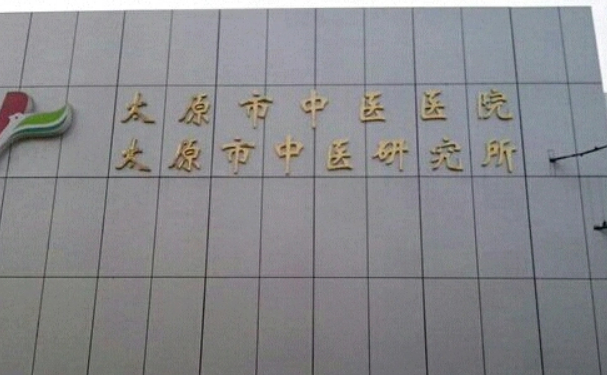 太原市中医医院
太原市中医研究所